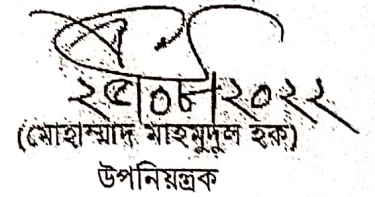 ২৫|০৮|২০২২
(মোহাম্মাদ মাহমুদুল হক)
উপনিয়ন্ত্রক